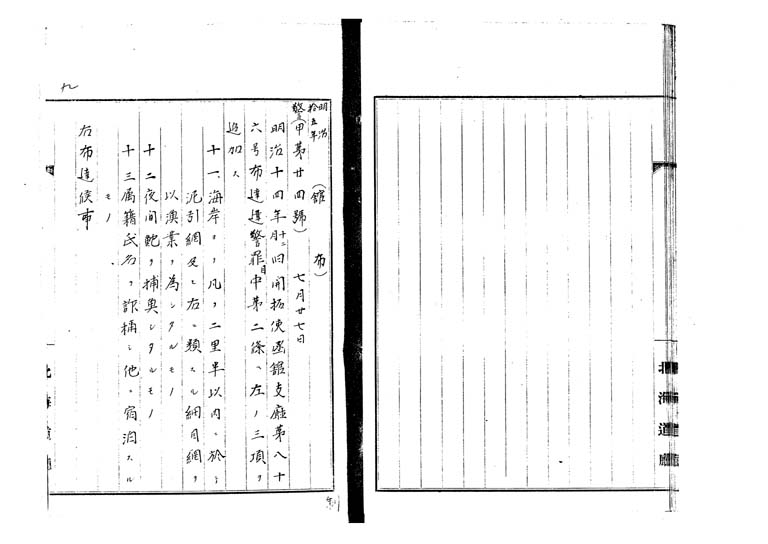 北海道廳
明治
拾五年
警(甲第廿四號) 七月廿七日
(館布)
明治十四年十二月旧開拓使函館支廳第八十
六号布達違警罪目中第二條ヘ左ノ三項ヲ
追加ス
十一、海岸ヨリ凡ソ二里半以内ニ於テ
泥引網及ヒ右ニ類スル網目網ヲ
以漁業ヲ為シタルモノ
十二夜間鮑ヲ捕奥シタルモノ
十三属籍氏名ヲ詐稱シ他ニ宿泊スル
モノ
右布達候事